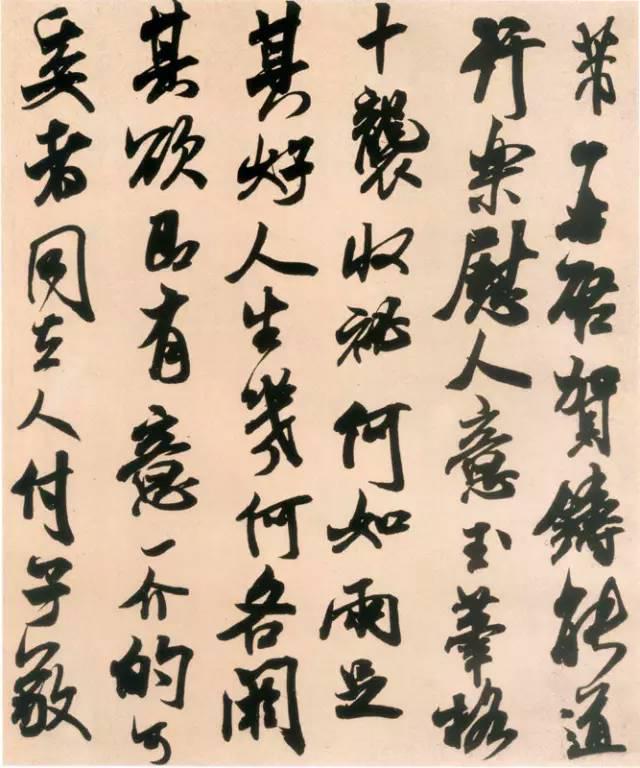 芾再啓賀鑄能道
行樂慰人意玉筆格
十襲收祕何如兩足
其好人生幾何各闋
其欲即有意一介的可
委者同去人付子敬